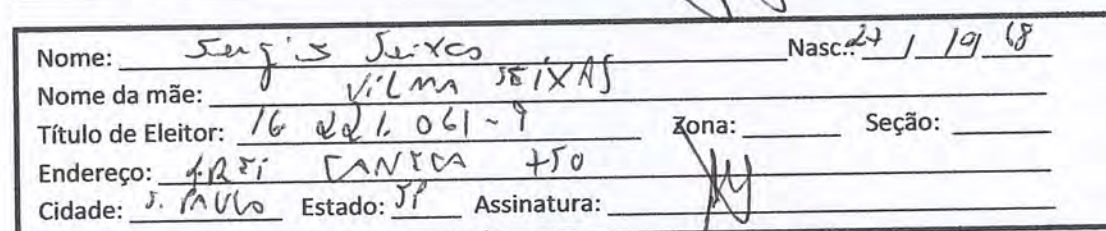 Nome: Sergio Seixas Nasc.: 27 / 19 68
Nome da mãe: VILMA SEIXAS
Título de Eleitor: 16 221.061-9 Zona: Seção:
Endereço: FREI CANECA 750
Cidade: S. PAULO Estado: SP Assinatura: